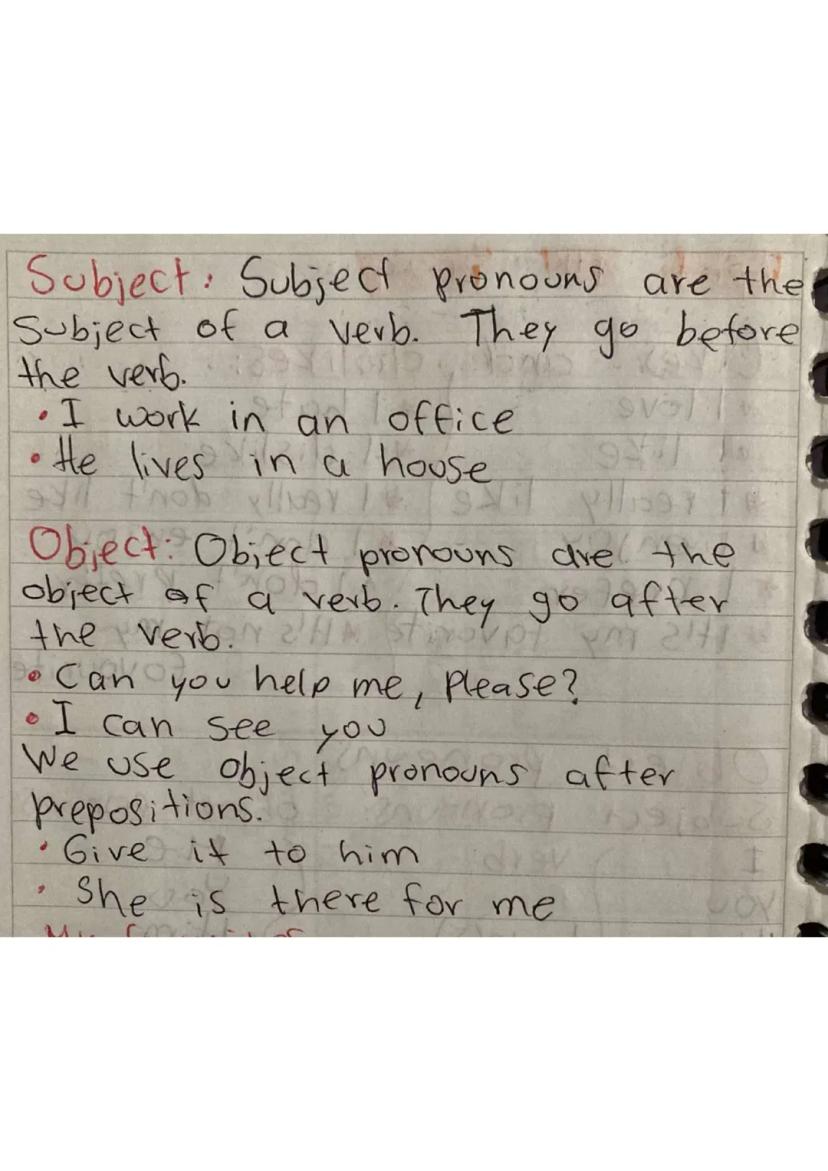 Subject: Subject pronouns are the
subject of a verb. They go before
the verb.
• I work in an office
• He lives in a house
Object: Object pronouns are the
object of a verb. They go after
the verb.
• Can you help me, please?
• I can see you
We use object pronouns after
prepositions.
• Give it to him
• She is there for me